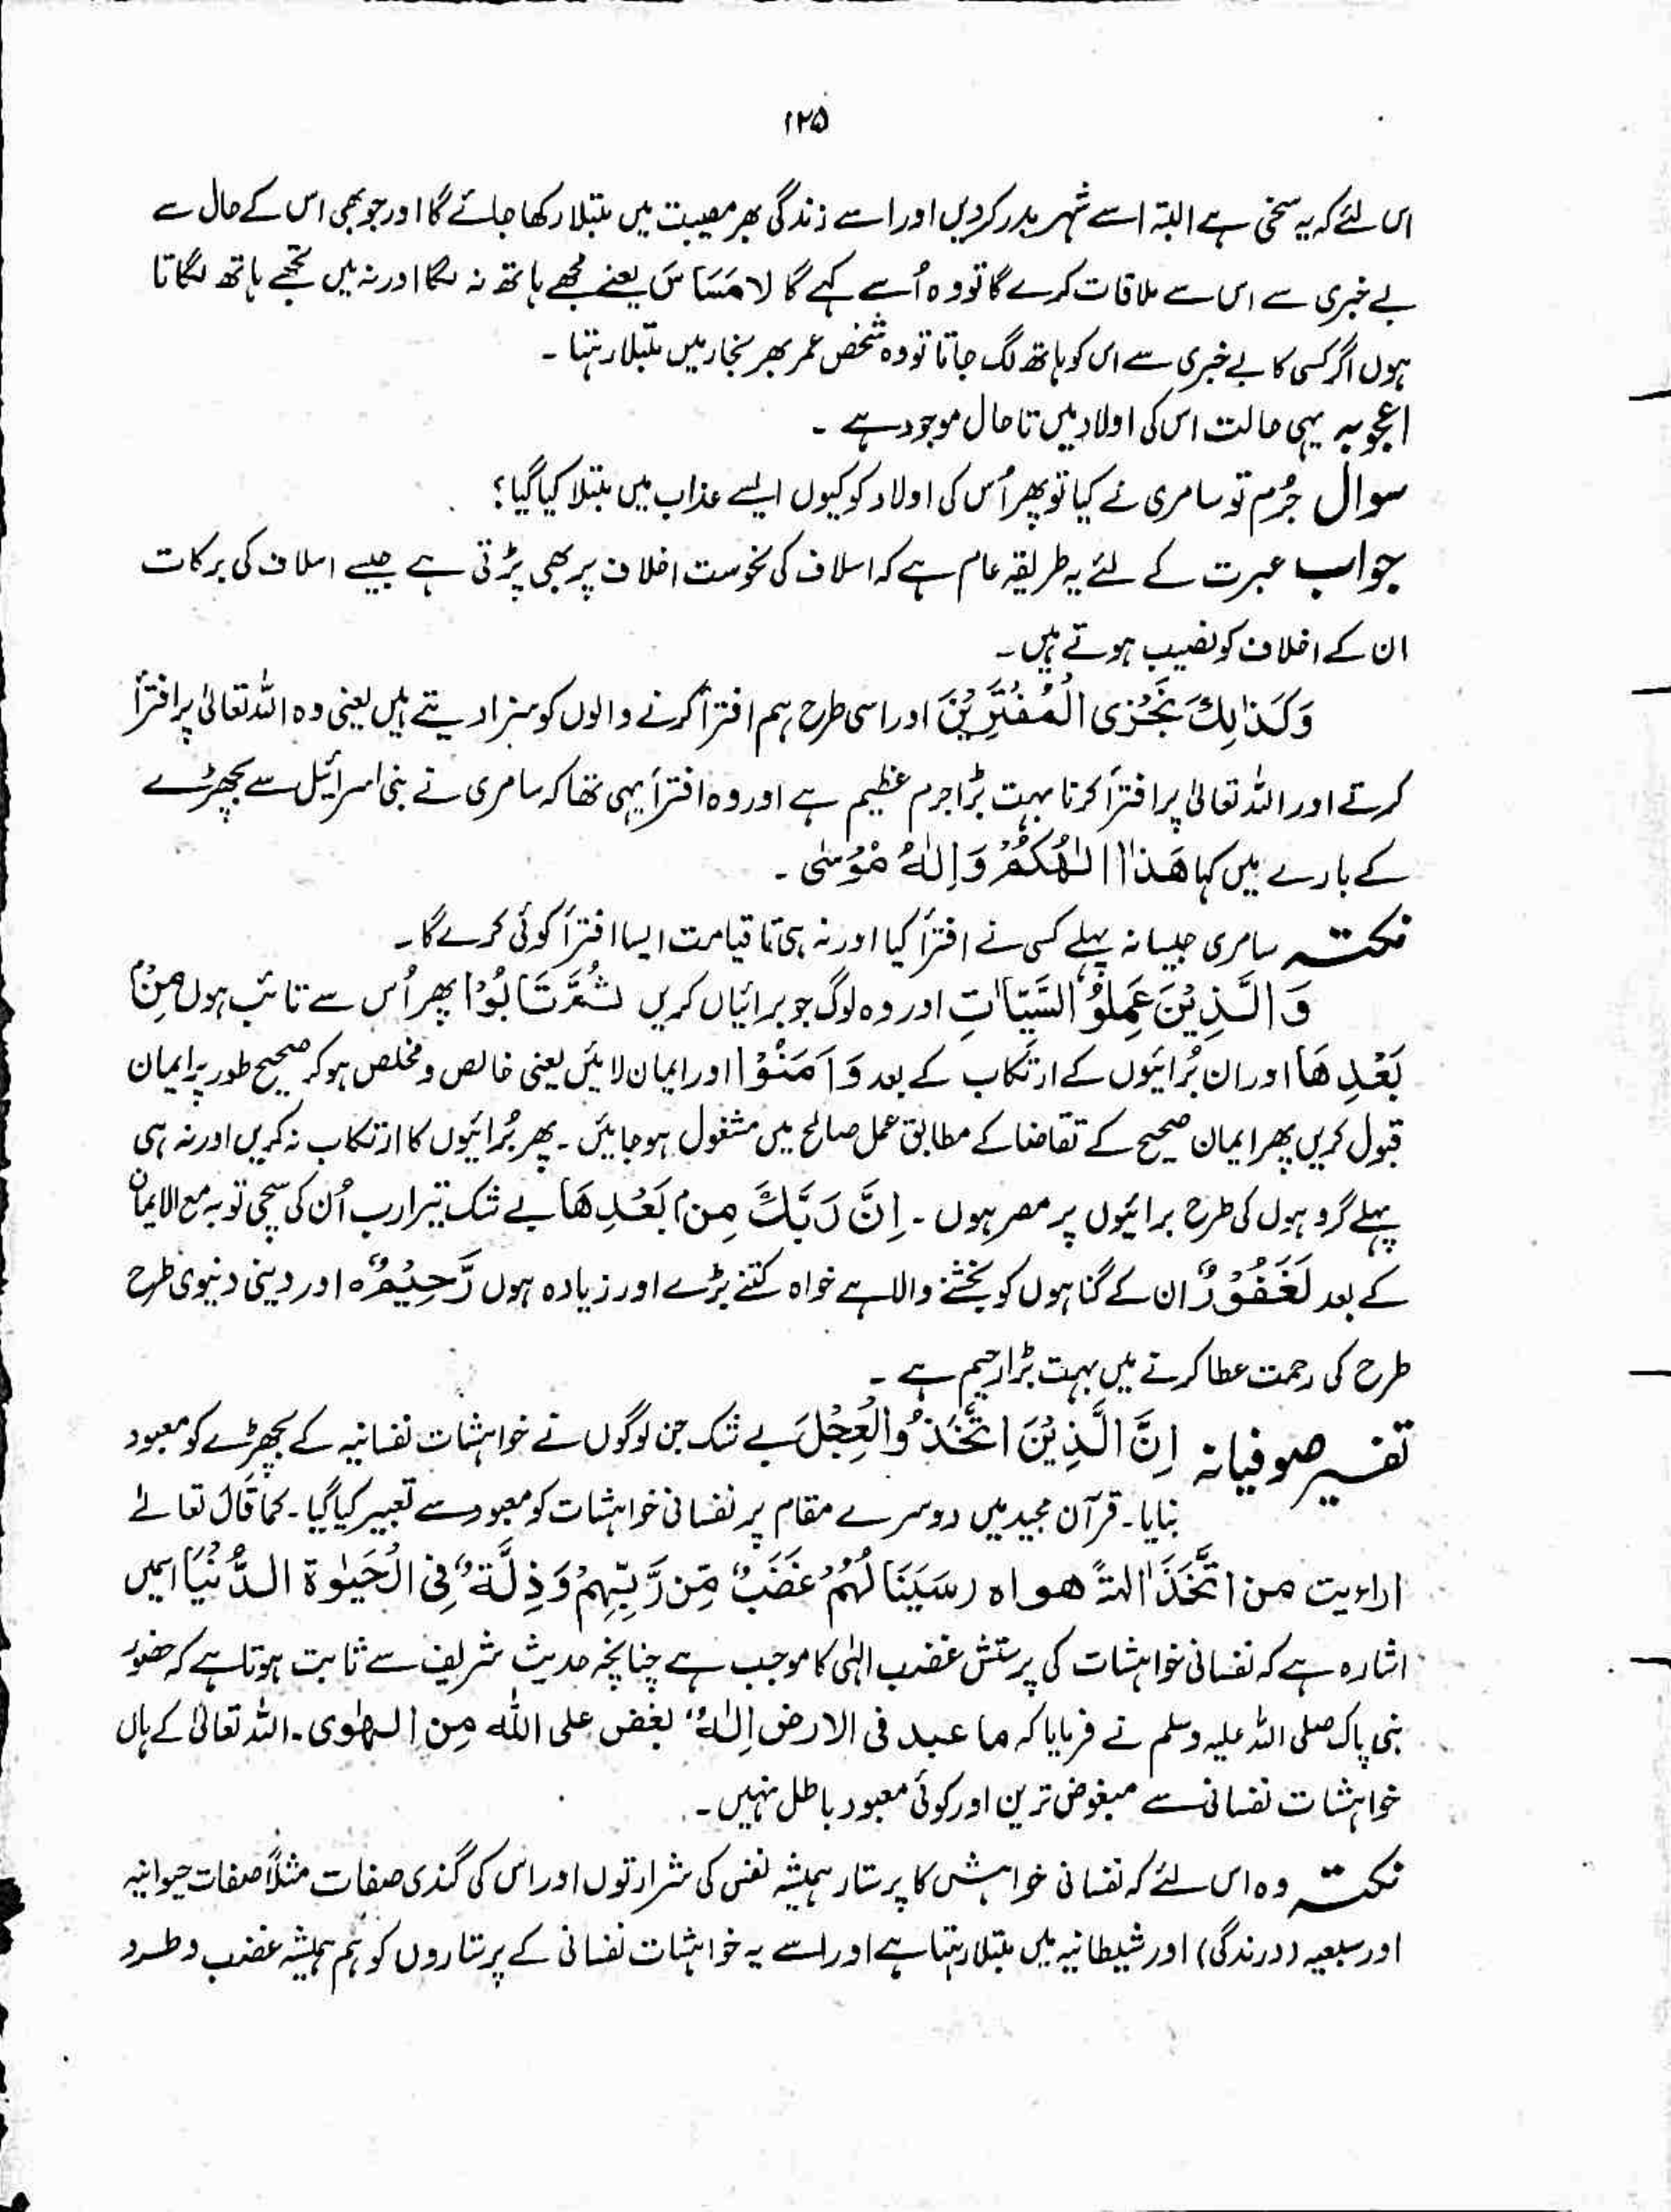 ۱۲۵
اس لئے کہ یہ سخی ہے البتہ اسے شہر بدر کردیں اور اسے زندگی بھر مصیبت میں مبتلا رکھا جائے گا اور جو بھی اس کے حال سے
بے خبری سے اس سے ملاقات کرے گا تو وہ اُسے کہے گا لا مَسَاسَ یعنے مجھے ہاتھ نہ لگا اور نہ میں تجھے ہاتھ لگاتا
ہوں اگر کسی کا بے خبری سے اس کو ہاتھ لگ جاتا تو وہ شخص عمر بھر بخار میں مبتلا رہتا ۔
اعجوبہ یہی حالت اس کی اولاد میں تا حال موجود ہے ۔
سوال جُرم تو سامری نے کیا تو پھر اُس کی اولاد کو کیوں ایسے عذاب میں مبتلا کیا گیا ؟
جواب عبرت کے لئے یہ طریقہ عام ہے کہ اسلاف کی نحوست اخلاف پر بھی پڑتی ہے جیسے اسلاف کی برکات
ان کے اخلاف کو نصیب ہوتے ہیں ۔
وَكَذٰلِكَ نَجْزِی الْمُفْتَرِيْنَ اور اسی طرح ہم افترأ کرنے والوں کو سزا دیتے ہیں یعنی وہ اللہ تعالیٰ پر افترأ
کرتے اور اللہ تعالیٰ پر افترأ کرنا بہت بڑا جرم عظیم ہے اور وہ افترأ یہی تھا کہ سامری نے بنی اسرائیل سے بچھڑے
کے بارے میں کہا هَذٰا اِلٰهُكُمْ وَاِلٰهُ مُوْسٰی ۔
نکتہ سامری جیسا نہ پہلے کسی نے افترأ کیا اور نہ ہی تا قیامت ایسا افترأ کوئی کرے گا ۔
وَالَّذِيْنَ عَمِلُو السَّيِّاٰتِ اور وہ لوگ جو برائیاں کریں ثُمَّ تَابُوْا پھر اُس سے تائب ہوں مِنْ
بَعْدِهَا اور ان بُرائیوں کے ارتکاب کے بعد وَاٰمَنُوْا اور ایمان لائیں یعنی خالص و مخلص ہو کر صحیح طور پر ایمان
قبول کریں پھر ایمان صحیح کے تقاضا کے مطابق عمل صالح میں مشغول ہو جائیں ۔ پھر بُرائیوں کا ارتکاب نہ کریں اور نہ ہی
پہلے گروہوں کی طرح برائیوں پر مصر ہوں ۔ اِنَّ رَبَّكَ مِنْۢ بَعْدِهَا بے شک تیرا رب اُن کی سچی توبہ مع الایمان
کے بعد لَغَفُوْرٌ ان کے گناہوں کو بخشنے والا ہے خواہ کتنے بڑے اور زیادہ ہوں رَّحِيْمٌ ٥ اور دینی دنیوی طرح
طرح کی رحمت عطا کرنے میں بہت بڑا رحیم ہے ۔
تفسیر صوفیانہ اِنَّ الَّذِيْنَ اتَّخَذُوالْعِجْلَ بے شک جن لوگوں نے خواہشات نفسانیہ کے بچھڑے کو معبود
بنایا ۔ قرآن مجید میں دوسرے مقام پر نفسانی خواہشات کو معبود سے تعبیر کیا گیا ۔ کما قَالَ تعالےٰ
اراءیت من اتَّخَذَ اٰلهةً هواه رسَيَنَا لُهُمْ غَضَبٌ مِّن رَّبِّهِمْ وَذِلَّةٌ فِی الْحَيٰوةِ الدُّنْيَا اسمیں
اشارہ ہے کہ نفسانی خواہشات کی پرستش غضب الٰہی کا موجب ہے چنانچہ حدیث شریف سے ثابت ہوتا ہے کہ حضور
نبی پاک صلی اللہ علیہ وسلم نے فرمایا کہ ما عبد فی الارض اِلٰهٌ بغض علی اللّٰه مِن الهٰوی ۔ اللہ تعالیٰ کے ہاں
خواہشات نفسانی سے مبغوض ترین اور کوئی معبود باطل نہیں ۔
نکتہ وہ اس لئے کہ نفسانی خواہش کا پرستار ہمیشہ نفس کی شرارتوں اور اس کی گندی صفات مثلاً صفات حیوانیہ
اور سبعیہ (درندگی) اور شیطانیہ میں مبتلا رہتا ہے اور اسے یہ خواہشات نفسانی کے پرستاروں کو ہم ہمیشہ غضب و طرد